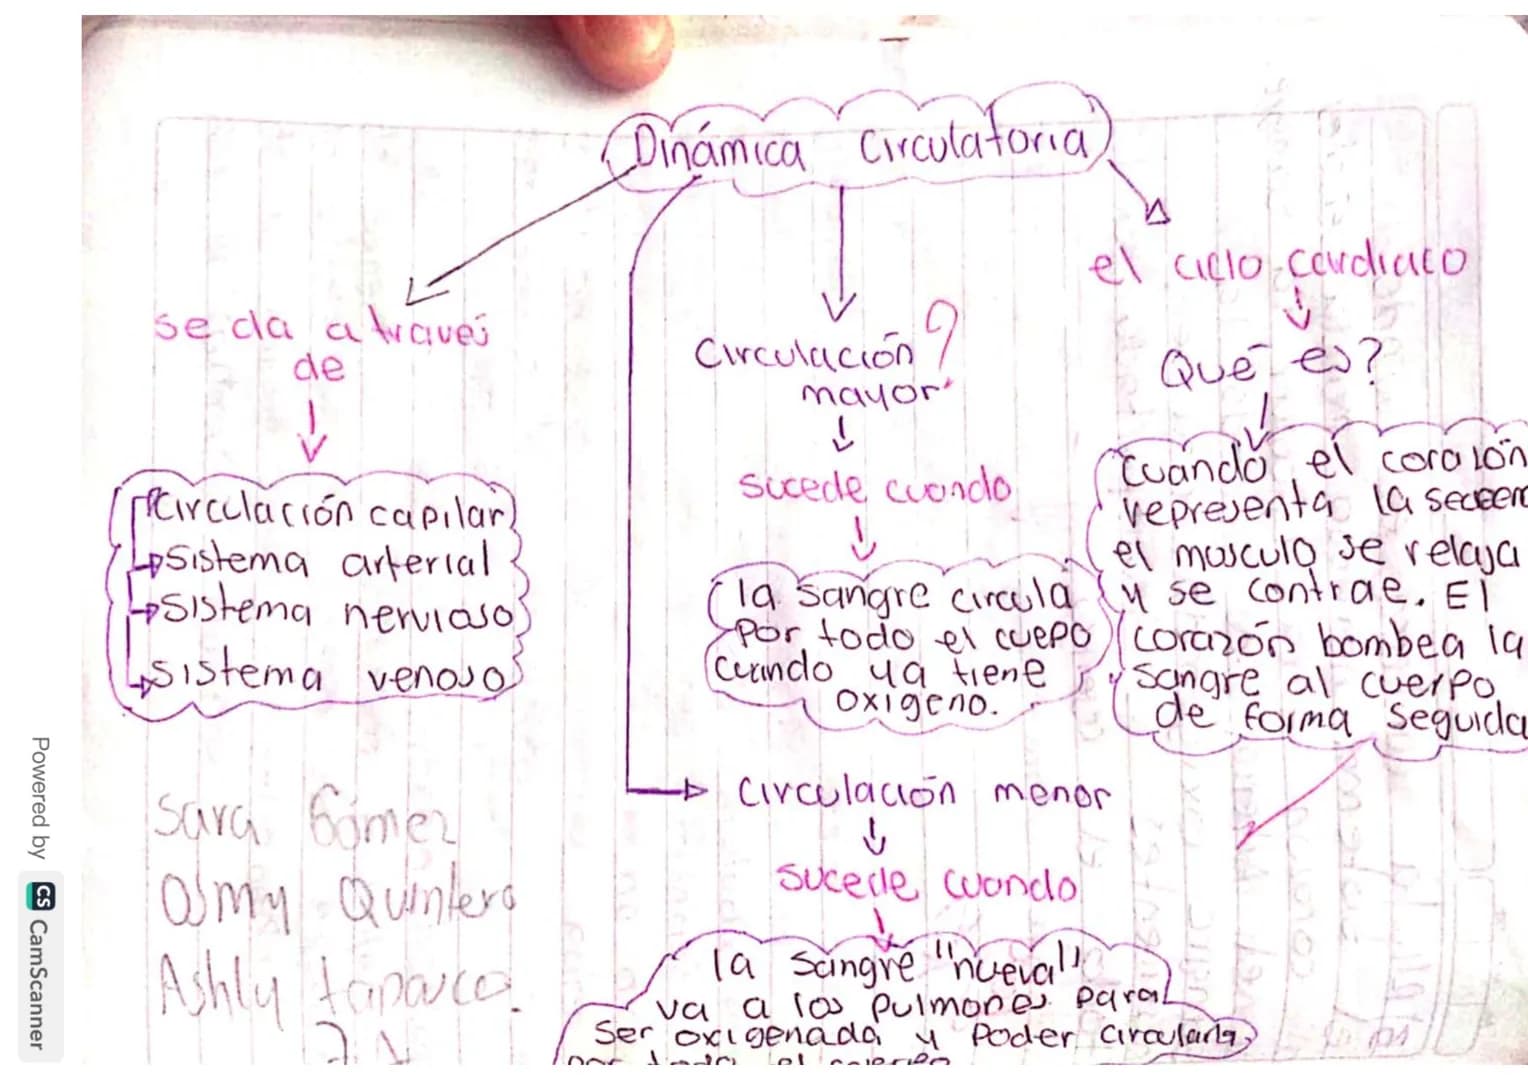 Dinámica Circulatoria
se da a través
de
Circulación capilar
Sistema arterial
Sistema nervioso
Sistema venoso
Sara Gómez
Quintero
Ashly
Circulación
mayor
sucede cuando
la sangre circula
por todo el cuepo
cuando ya tiene
oxigeno.
Circulación menor
sucede cuando
la sangre "nueva"
va a los pulmones para
ser oxigenada y poder circularla
el ciclo cardiaco
Qué es?
Cuando el corazón
representa la
el musculo se relaja
y se contrae. El
corazón bombea la
sangre al cuerpo
de forma seguida
Powered by CS CamScanner